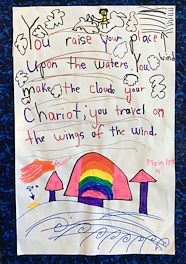 You raise your place
upon the waters you
wind
make the clouds your
Chariot; you travel on
the wings of the wind.
Psalm 104